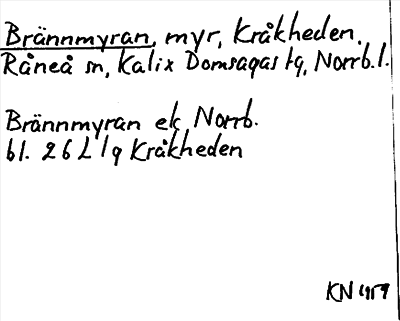 Brännmyran, myr, Kråkheden.
Råneå sn, Kalix Domsagas tg, Norrb.l.
Brännmyran ek Norrb.
bl. 26L 1g Kråkheden
KN 1959